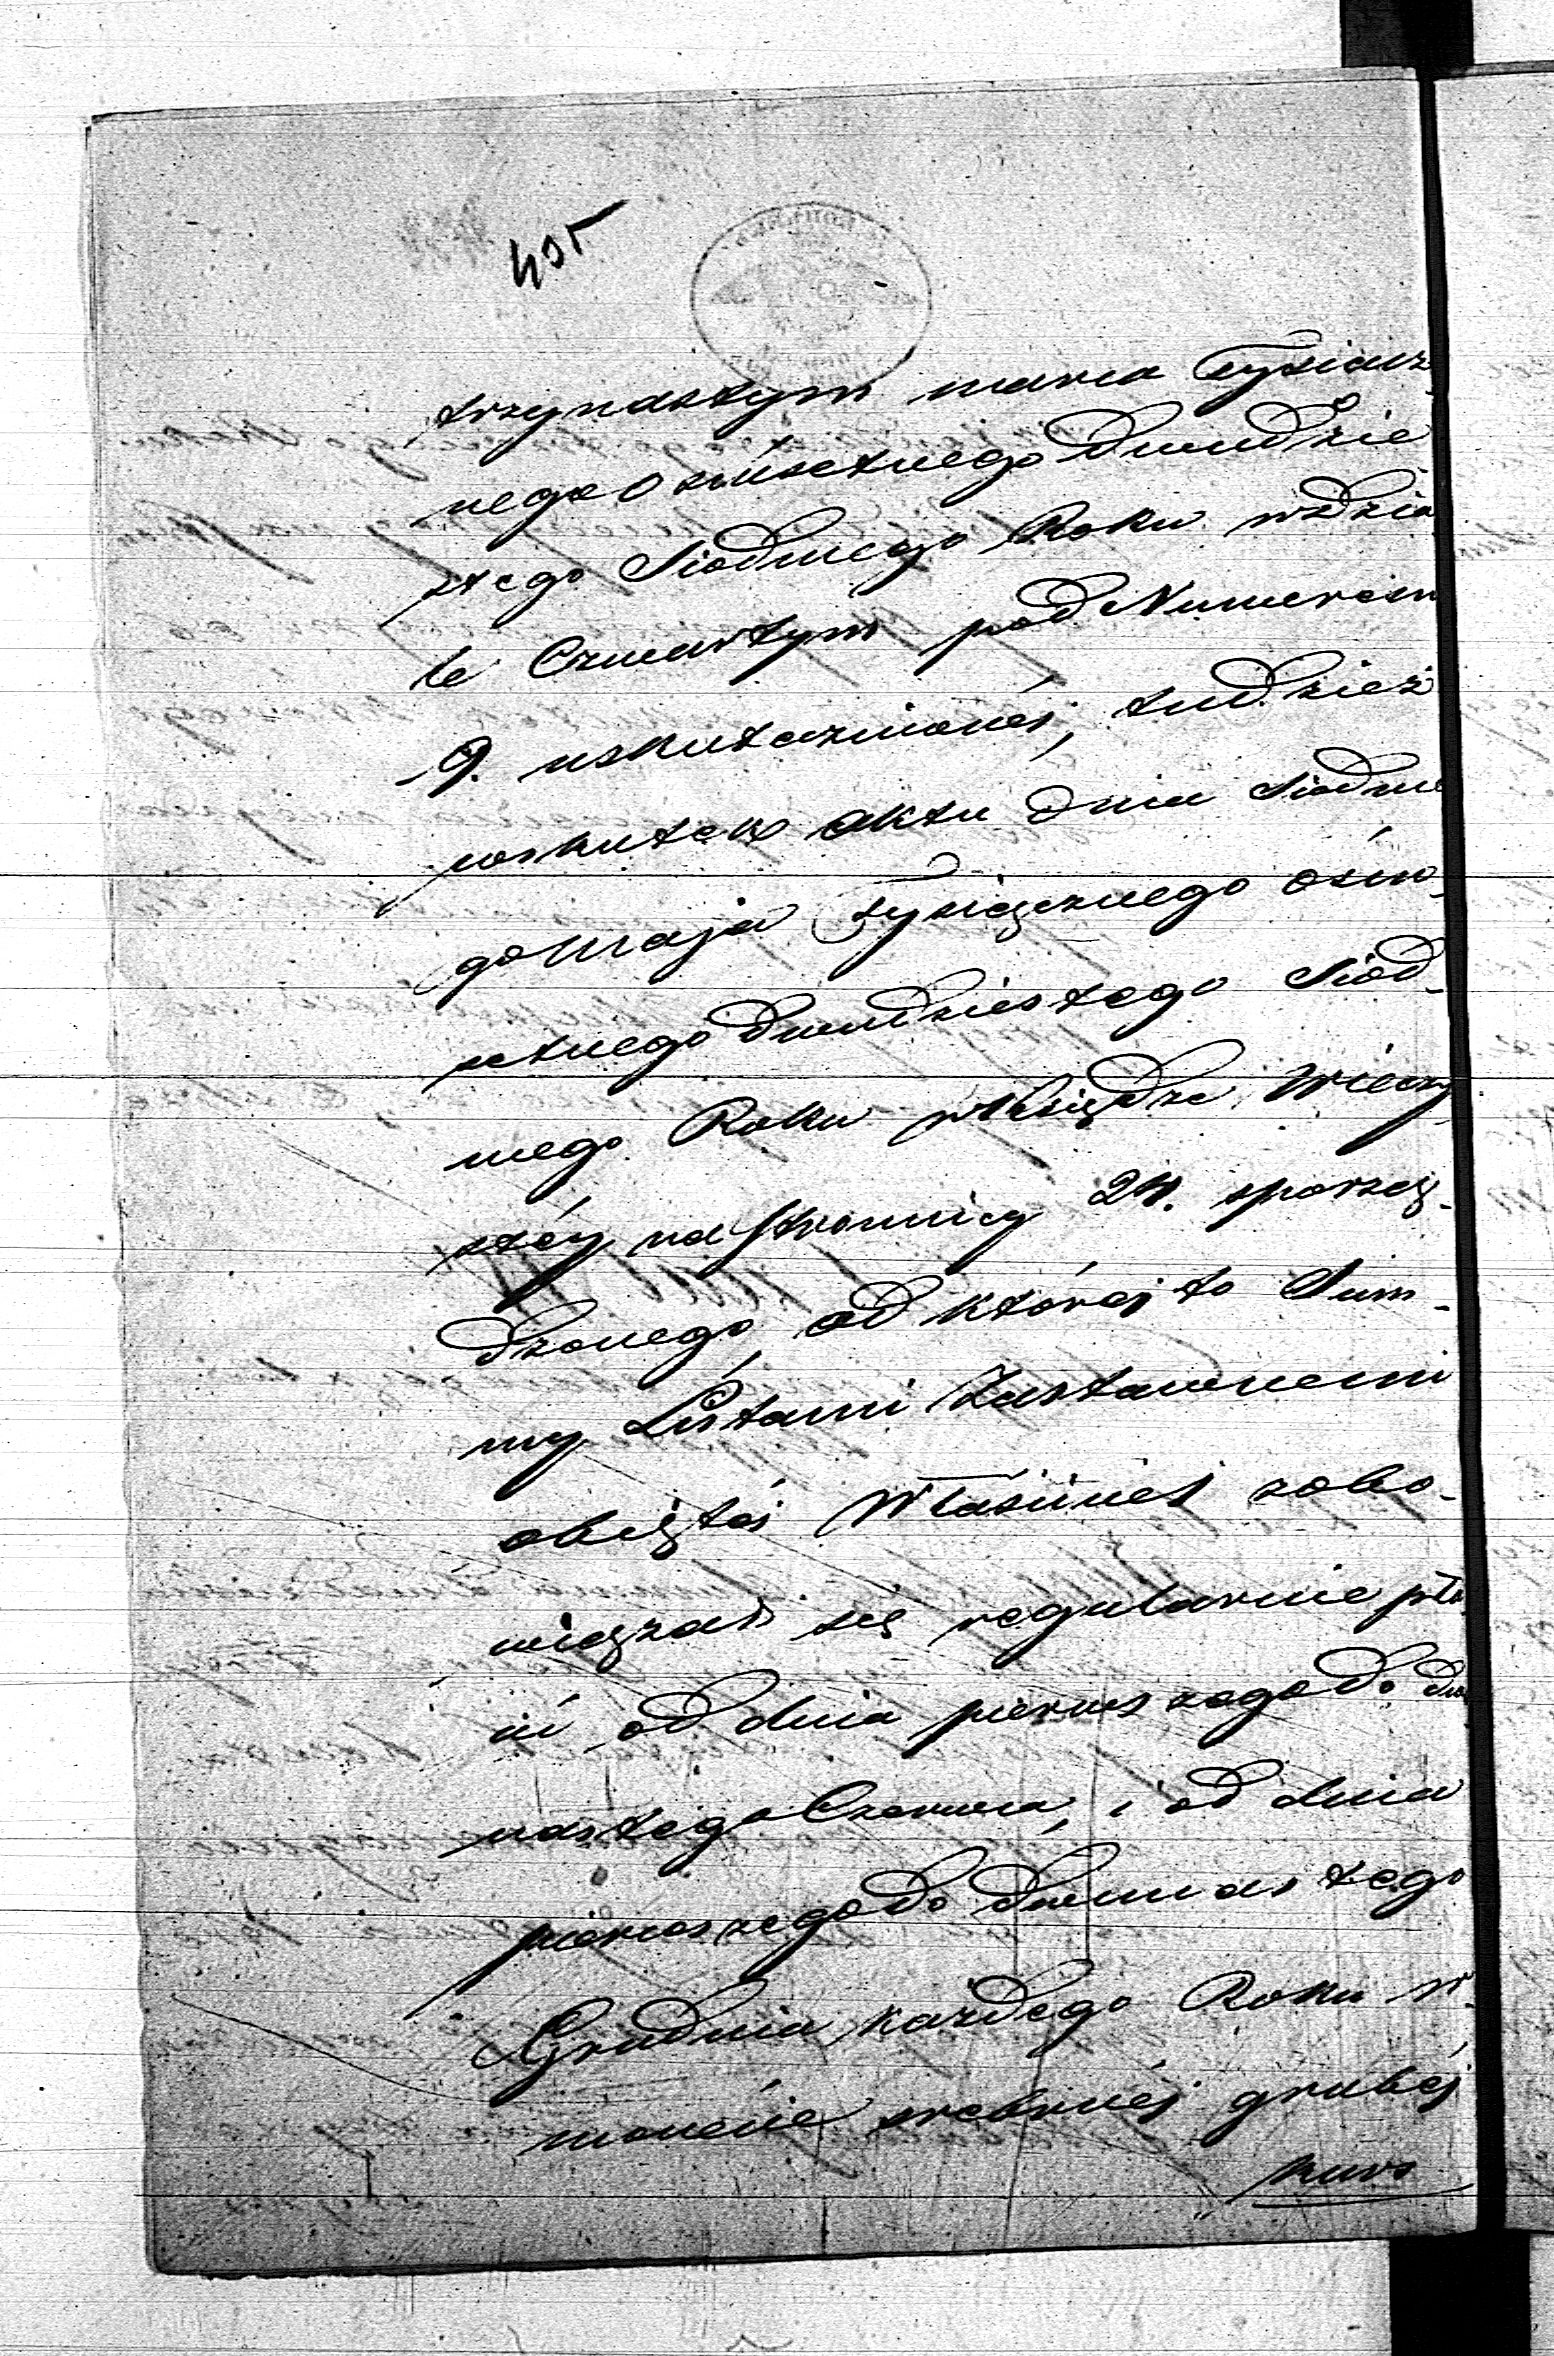 405
trzynastym marca Tysiącz
nego Osmsetnego Dwudzie
stego Siodmego Roku wdzia
le Czwartym pod Numerem
9. uskutecznionej, tudzież
wskutek aktu Dnia Siodme
go Maja Tysiącznego Ośm-
setnego Dwudziestego Siód-
mego Roku w Księdze Wieczy
stéy na stronnicy 24. sporzą-
dzonego, od któréj to Sum-
my Listami Zastawnemi
objętéj Właściciel zobo-
wiązań się regularnie pła
cić od dnia pierwszego do dwu
nastego Czerwca, i od dnia
pierwszego do dwunastego
Grudnia, każdego Roku w
monecie srebrnéj grubéj
kurs